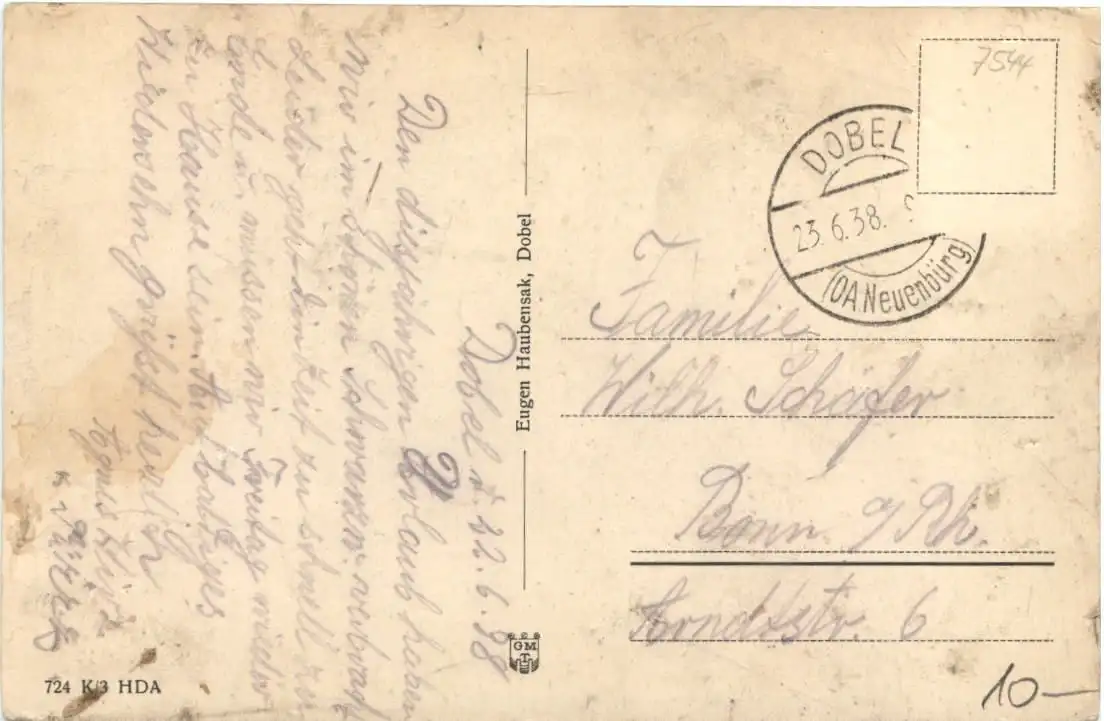 Dobel d. 22.6.38
Den diesjährigen Urlaub haben
wir im schönen Schwarzw. verbracht
Leider geht die Zeit zu schnell zu
Ende u. müssen wir Freitag wieder
zu Hause sein. Auf baldiges
Wiedersehn grüßt herzlich
Eugen Haubensak, Dobel
GMT
724 K/3 HDA
7544
DOBEL
23.6.38.
(OA.Neuenbürg)
Familie
Wilh. Schäfer
Bonn a/Rh.
Arndtstr. 6
10—